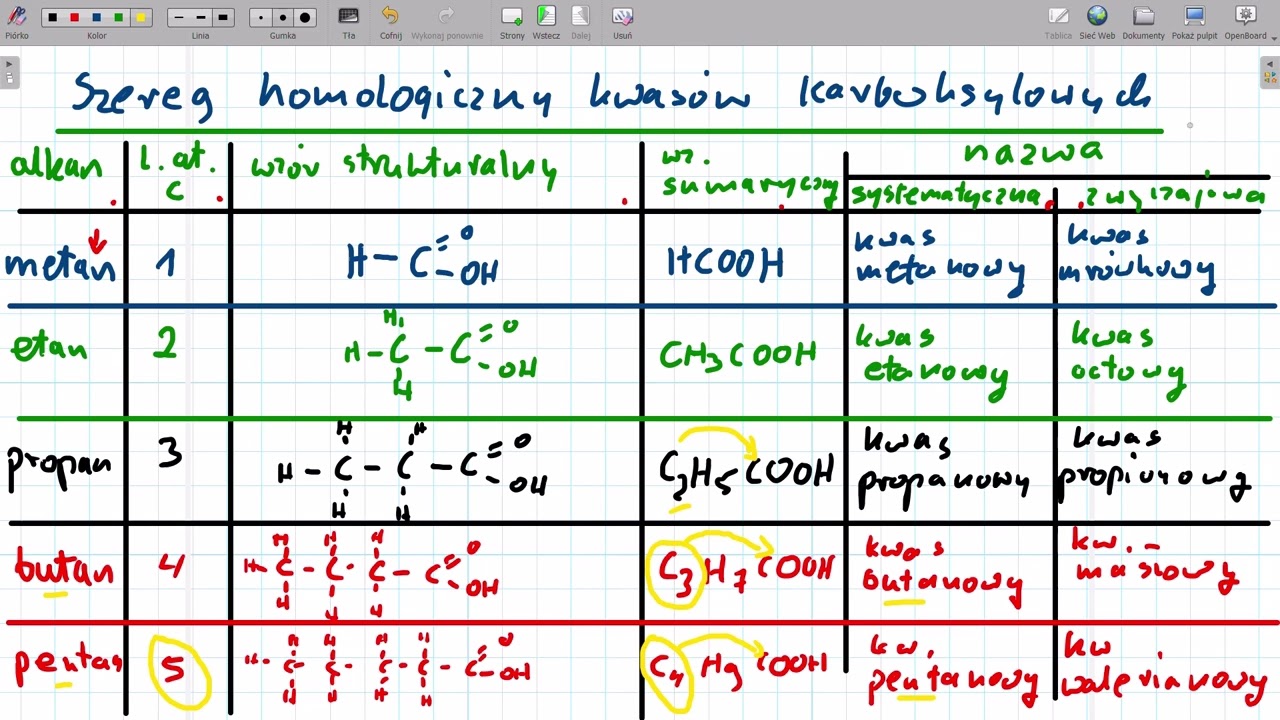 Piórko Kolor Linia Gumka Tła Cofnij Wykonaj ponownie Strony Wstecz Dalej Usuń Tablica Sieć Web Dokumenty Pokaż pulpit OpenBoard
Szereg homologiczny kwasów karboksylowych
alkan l. at. C wzór strukturalny wz. sumaryczny nazwa
systematyczna zwyczajowa
metan 1 H-C=O -OH HCOOH kwas metanowy kwas mrówkowy
etan 2 H H-C-C=O -OH H CH3COOH kwas etanowy kwas octowy
propan 3 H H H-C-C-C=O -OH H H C2H5COOH kwas propanowy kwas propionowy
butan 4 H H H H-C-C-C-C=O -OH H H H C3H7COOH kwas butanowy kw. masłowy
pentan 5 H H H H H-C-C-C-C-C=O -OH H H H H C4H9COOH kw. pentanowy kw walerianowy